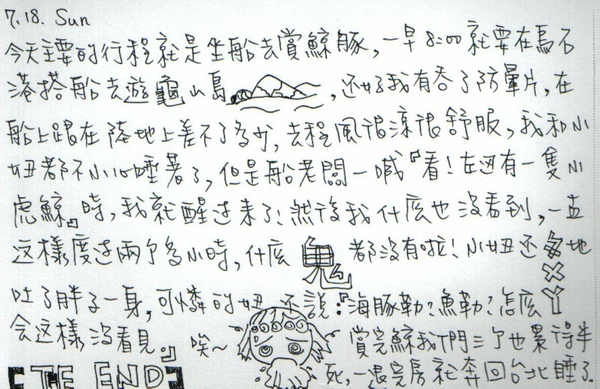 7.18. Sun
今天主要的行程就是坐船去賞鯨豚,一早8:00就要在烏石
港搭船去遊龜山島,還好我有吞了防暈片,在
船上跟在陸地上差不了多少,去程風很涼很舒服,我和小
妞都不小心睡著了,但是船老闆一喊『看!左邊有一隻小
虎鯨』時,我就醒過來了!然後我什麼也沒看到,一直
這樣度過兩個多小時,什麼鬼都沒有啦!小妞還多次地
吐了胖子一身,可憐的妞還說:『海豚勒?魚勒?怎麼
會這樣沒看見。』唉~賞完鯨我們三個也累得半
死,一退完房就奔回台北睡了
【THE END】